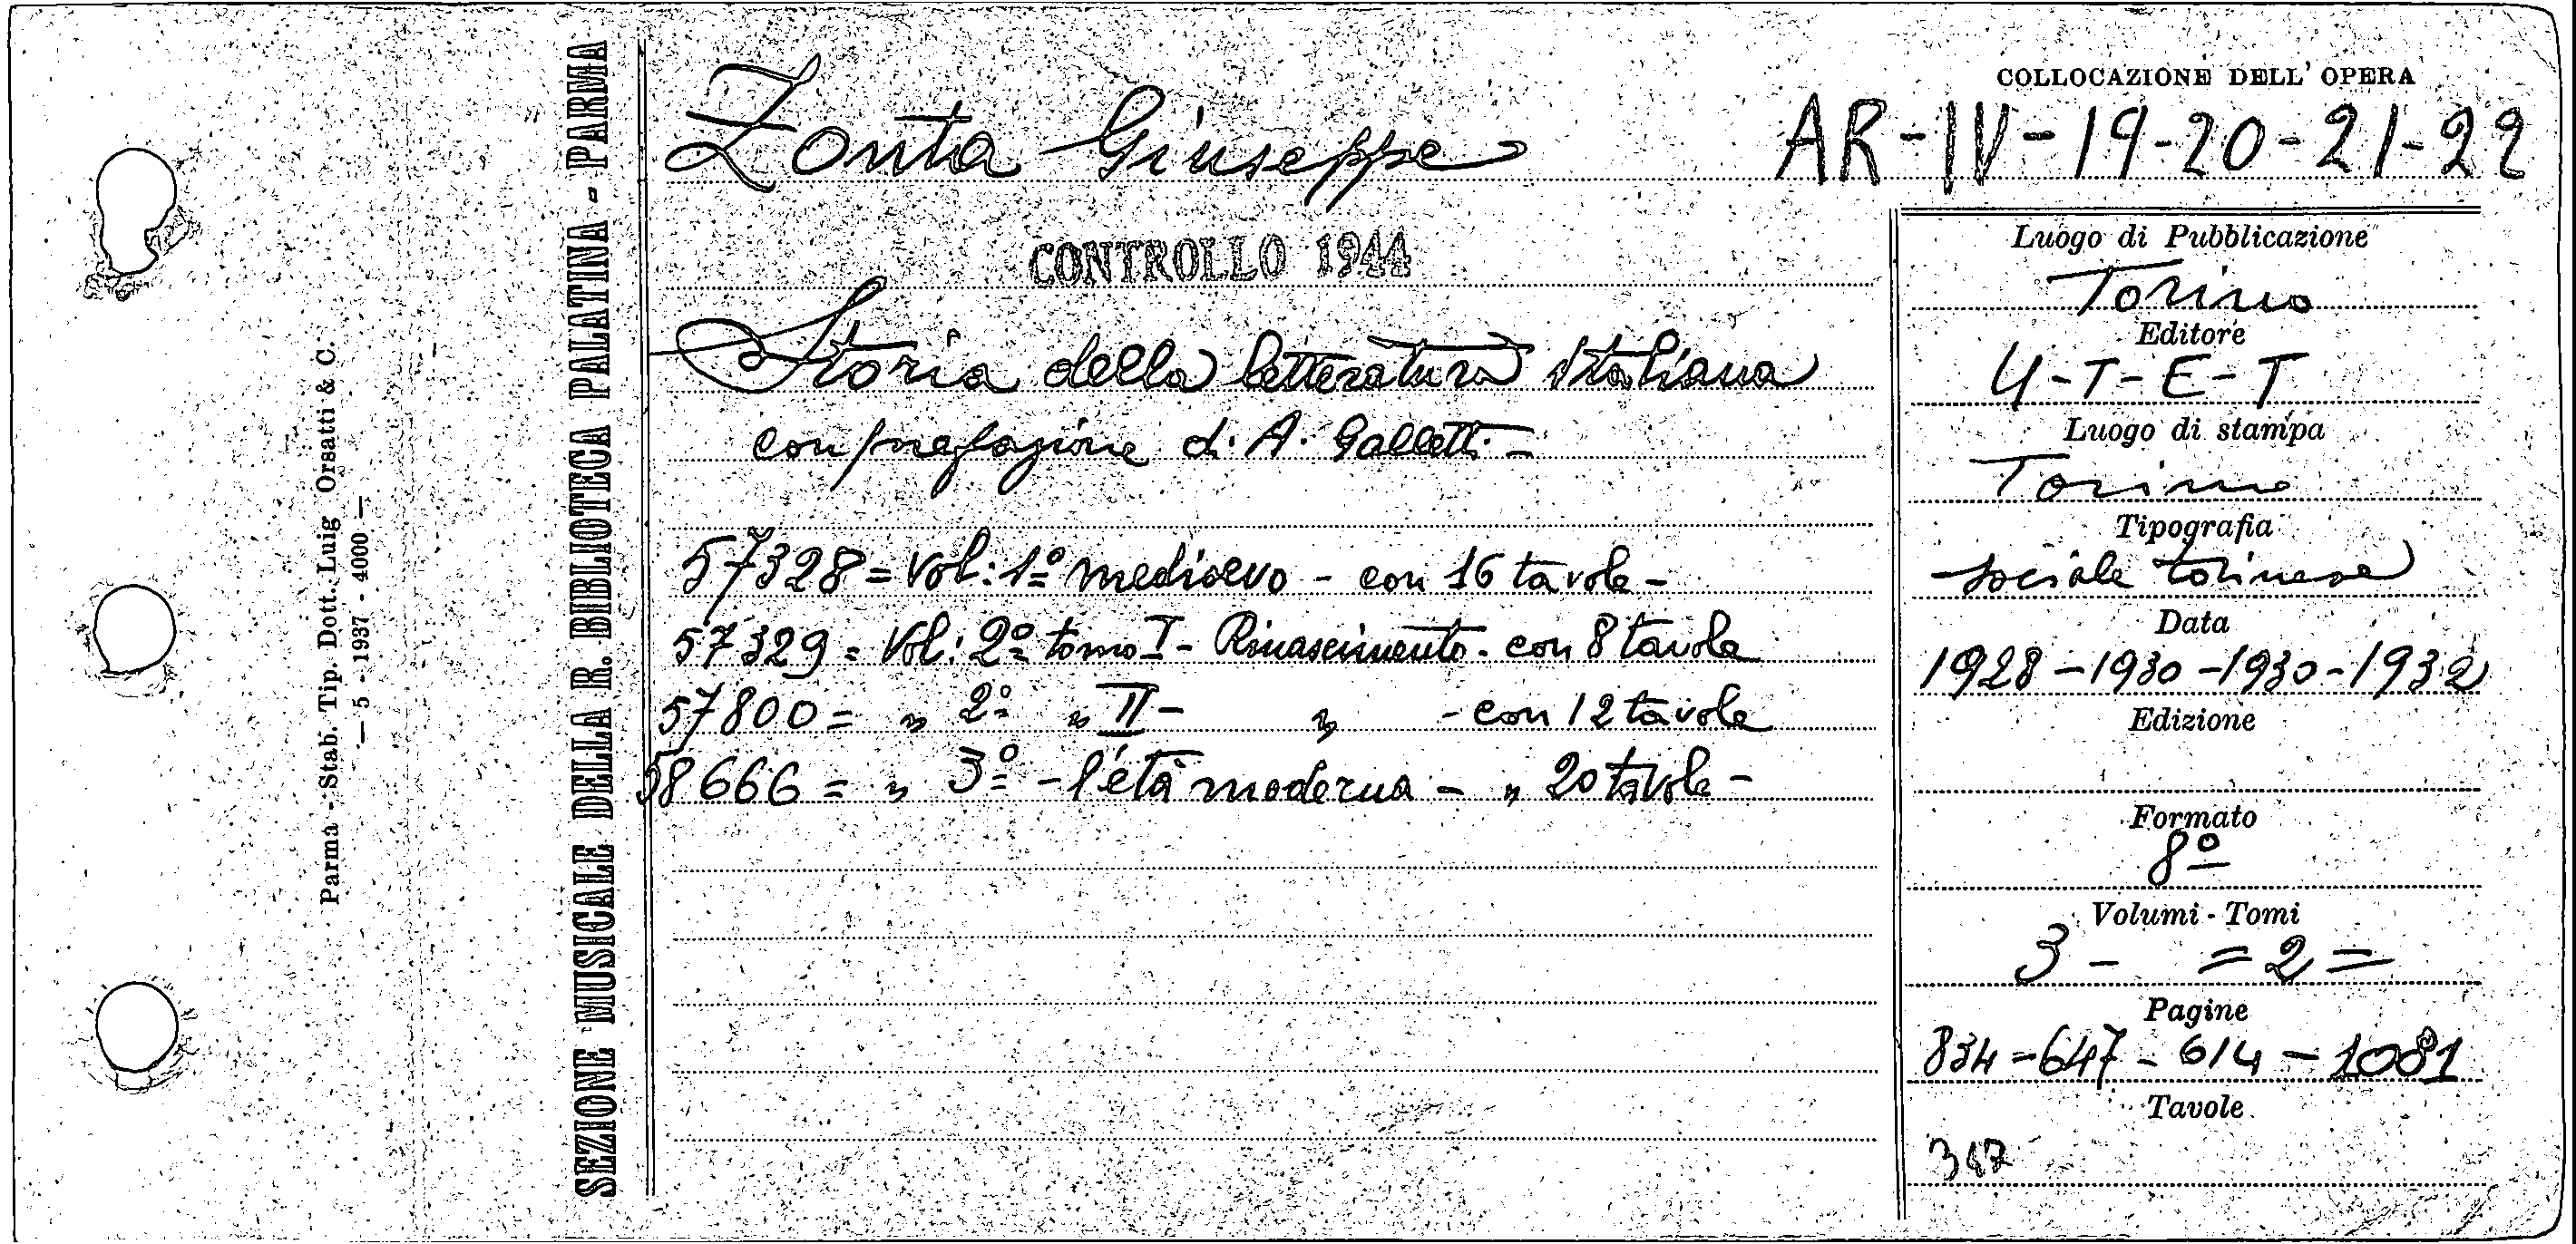 Parma - Stab. Tip. Dott. Luig Orsatti & C.
— 5 - 1937 - 4000 —
SEZIONE MUSICALE DELLA R. BIBLIOTECA PALATINA - PARMA
Zonta Giuseppe
CONTROLLO 1944
Storia della letteratura italiana
con prefazione di A. Galletti -
57328 = Vol: 1º medioevo - con 16 tavole -
57329 = Vol: 2º tomo I - Rinascimento - con 8 tavole
57800 = „ 2º „ II - „ - con 12 tavole
58666 = „ 3º - l'età moderna - „ 20 tavole -
COLLOCAZIONE DELL' OPERA
AR-IV-19-20-21-22
Luogo di Pubblicazione
Torino
Editore
U-T-E-T
Luogo di stampa
Torino
Tipografia
sociale torinese
Data
1928-1930-1930-1932
Edizione
Formato
8º
Volumi - Tomi
3 - =2=
Pagine
834-647-614-1081
Tavole